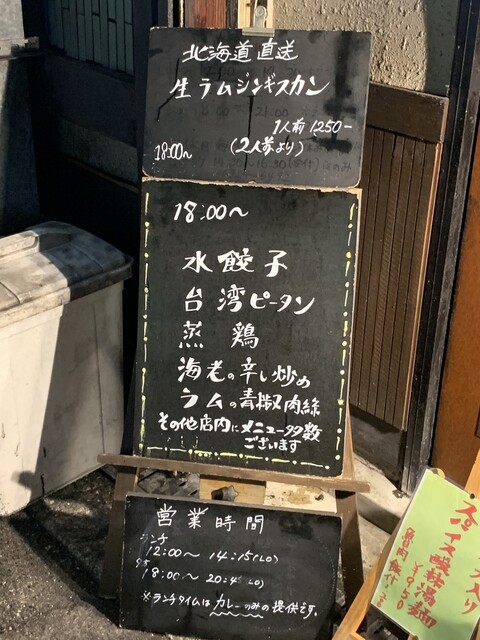 北海道直送
生ラムジンギスカン
1人前 1250-
18:00~ (2人前より)
18:00~
水餃子
台湾ピータン
蒸鶏
海老の辛し炒め
ラムの青椒肉絲
その他店内にメニュー多数
ございます
営業時間
ランチ
12:00~14:15(LO)
18:00~20:45(LO)
※ランチタイムはカレーのみの提供です。